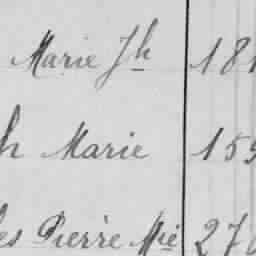 Marie Jh 181
h Marie 159
es Pierre Mie 270